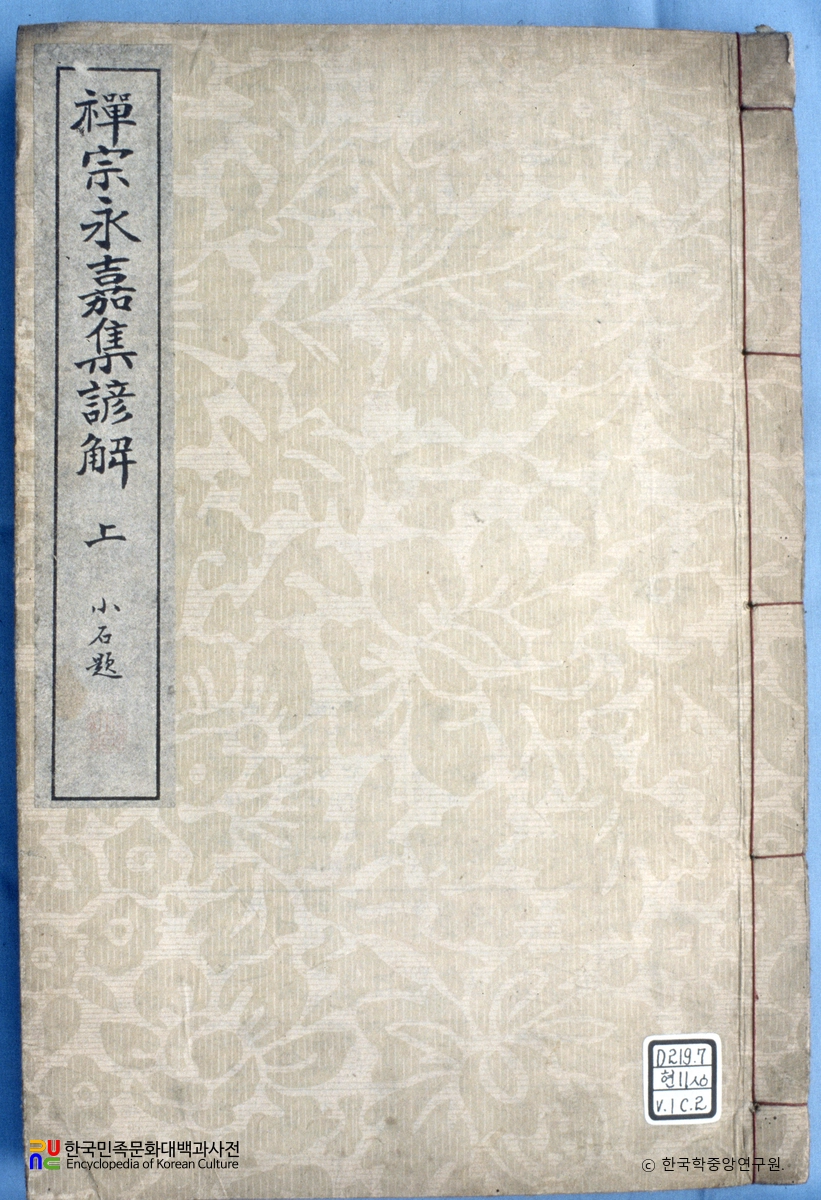 禪宗永嘉集諺解 上
小石題
D219.7
현11ㅅㅓ
V.1 C.2
한국민족문화대백과사전
Encyclopedia of Korean Culture
ⓒ 한국학중앙연구원.